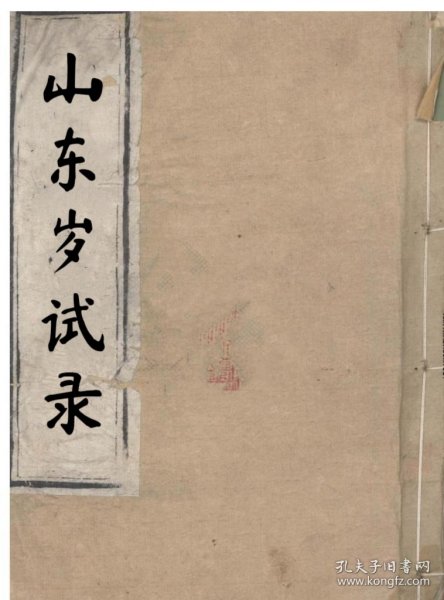 山东岁试录
孔夫子旧书网
www.kongfz.com